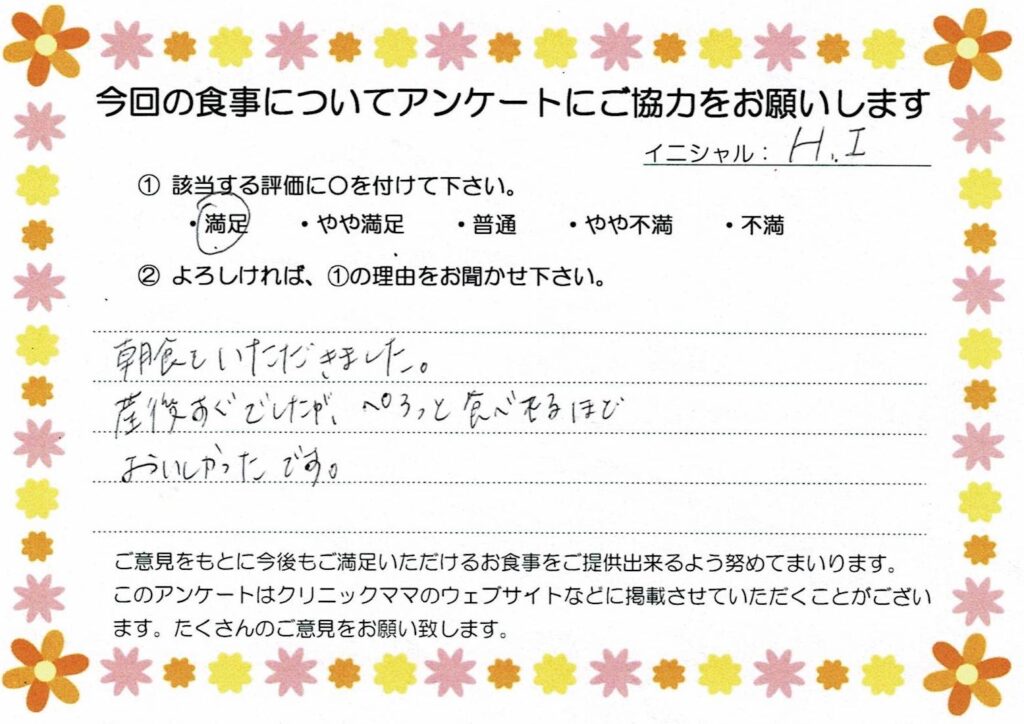 今回の食事についてアンケートにご協力をお願いします
イニシャル： H.I
① 該当する評価に〇を付けて下さい。
・満足 ・やや満足 ・普通 ・やや不満 ・不満
② よろしければ、①の理由をお聞かせ下さい。
朝食をいただきました。
産後すぐでしたが、ぺろっと食べれるほど
おいしかったです。
ご意見をもとに今後もご満足いただけるお食事をご提供出来るよう努めてまいります。
このアンケートはクリニックママのウェブサイトなどに掲載させていただくことがござい
ます。たくさんのご意見をお願い致します。